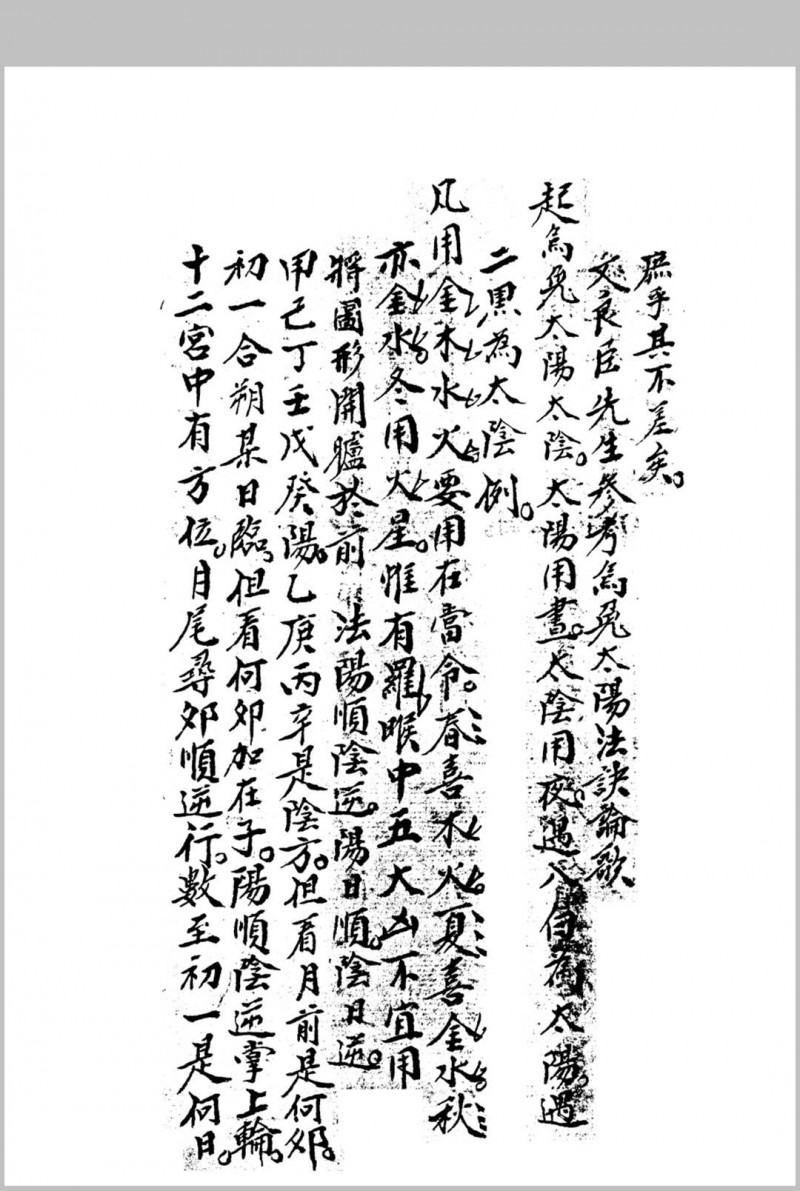 庶乎其不差矣。
文良臣先生參考烏兔太陽法訣論歌
起烏兔太陽太陰。太陽用晝。太陰用夜。遇八白為太陽。遇
二黑為太陰例。
凡用金木水火要用在當令。春喜木火夏喜金水秋
亦金水冬用火星。惟有羅睺中五大凶不宜用
將圖形開臚於前 法陽順陰逆。陽日順。陰日逆。
甲己丁壬戊癸陽。乙庚丙辛是陰方。但看月前是何卯。
初一合朔某日臨。但看何卯加在子。陽順陰逆掌上輪。
十二宮中有方位。月尾尋卯順逆行。數至初一是何日。